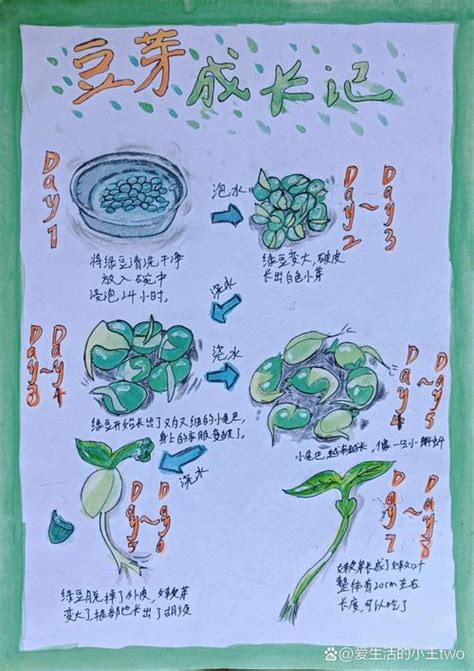 豆芽成长记
Day 1
泡水
Day 2~Day 3
将绿豆清洗干净
放入碗中
浸泡24小时。
绿豆变大,破皮
长出白色小芽
浇水
Day 3~Day 4
浇水
Day 4~Day 5
绿豆开始长出了又白又细的小尾巴,
身上的衣服变皱了。
小尾巴越来越长,像一只小蝌蚪
浇水
Day 5~Day 6
Day 7~Day 8
绿豆脱掉了外皮,
变大了,根部也长出了胡须
嫩芽长成了
整体有20cm左右
长度,可以吃了
@爱生活的小王two